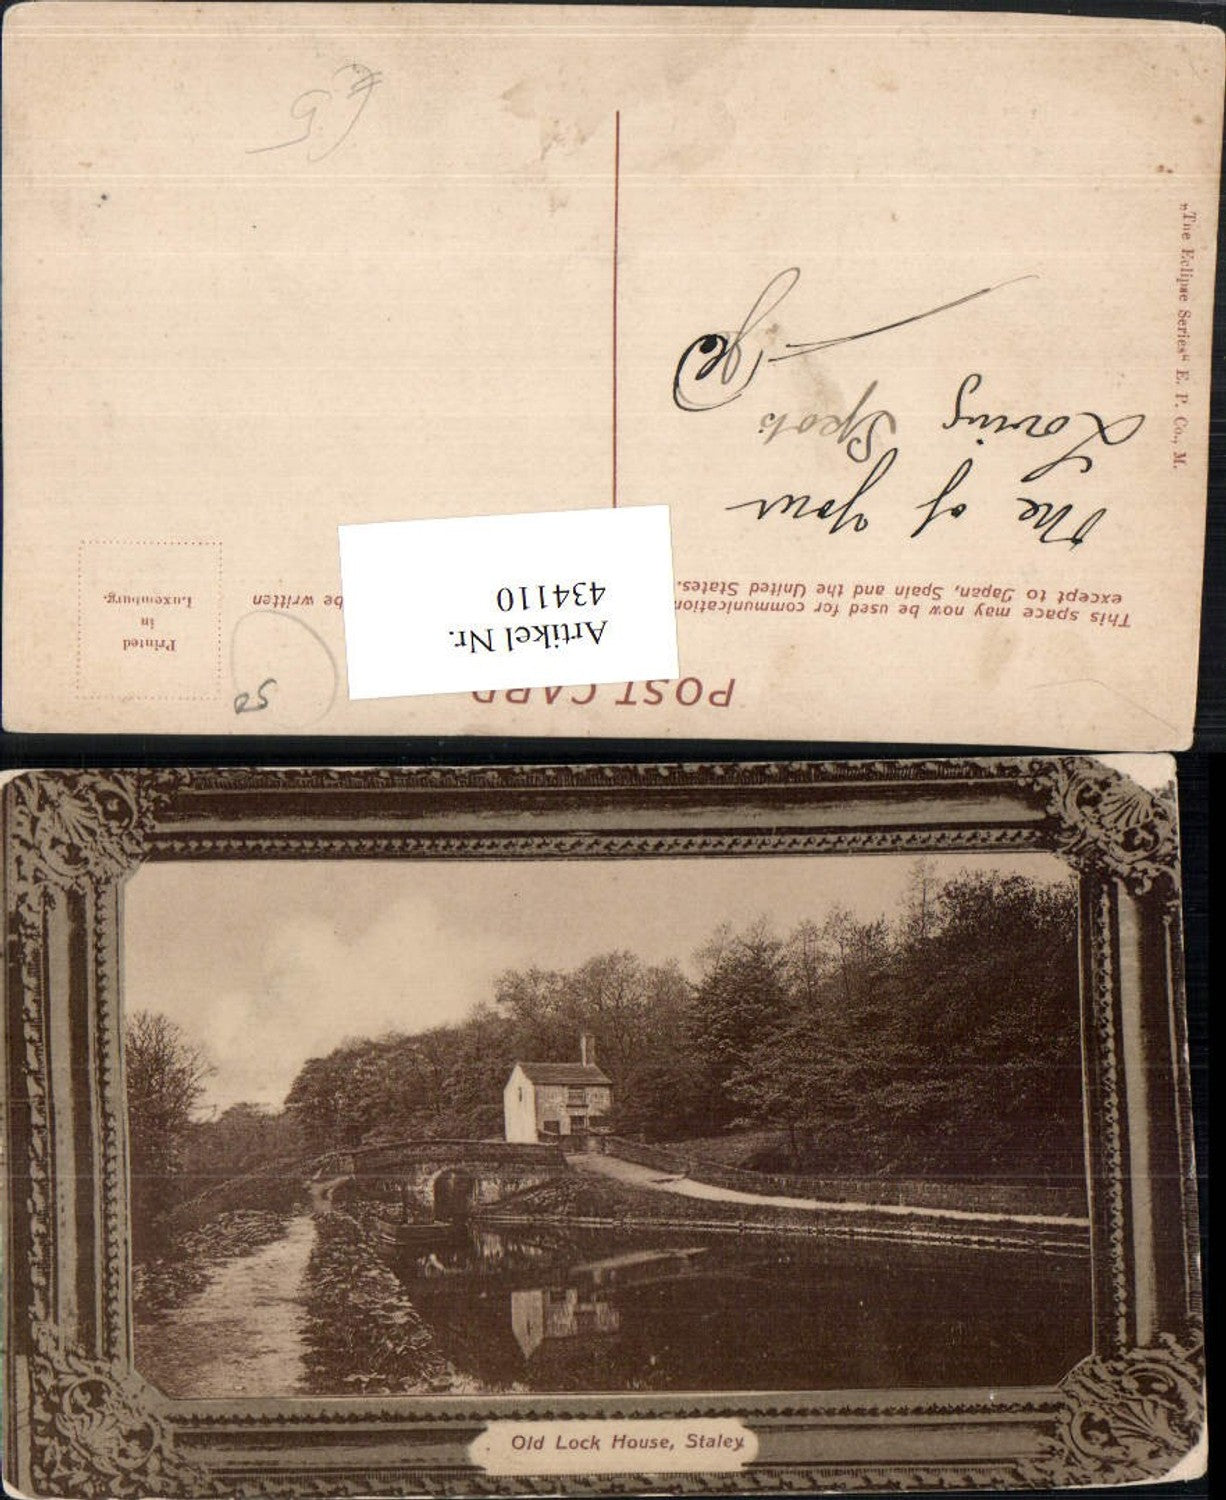 POST CARD
This space may now be used for communication
except to Japan, Spain and the United States.
be written
Printed
in
Luxemburg.
Artikel Nr.
434110
50
The of your
Loving Spots
„The Eclipse Series“ E. P. Co., M.
Old Lock House, Staley